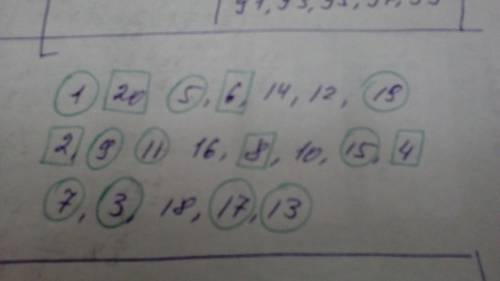 91, 93, 95, 97, 99
1 20 5, 6, 14, 12, 19
2, 9 11 16, 8, 10, 15, 4
7, 3, 18, 17, 13